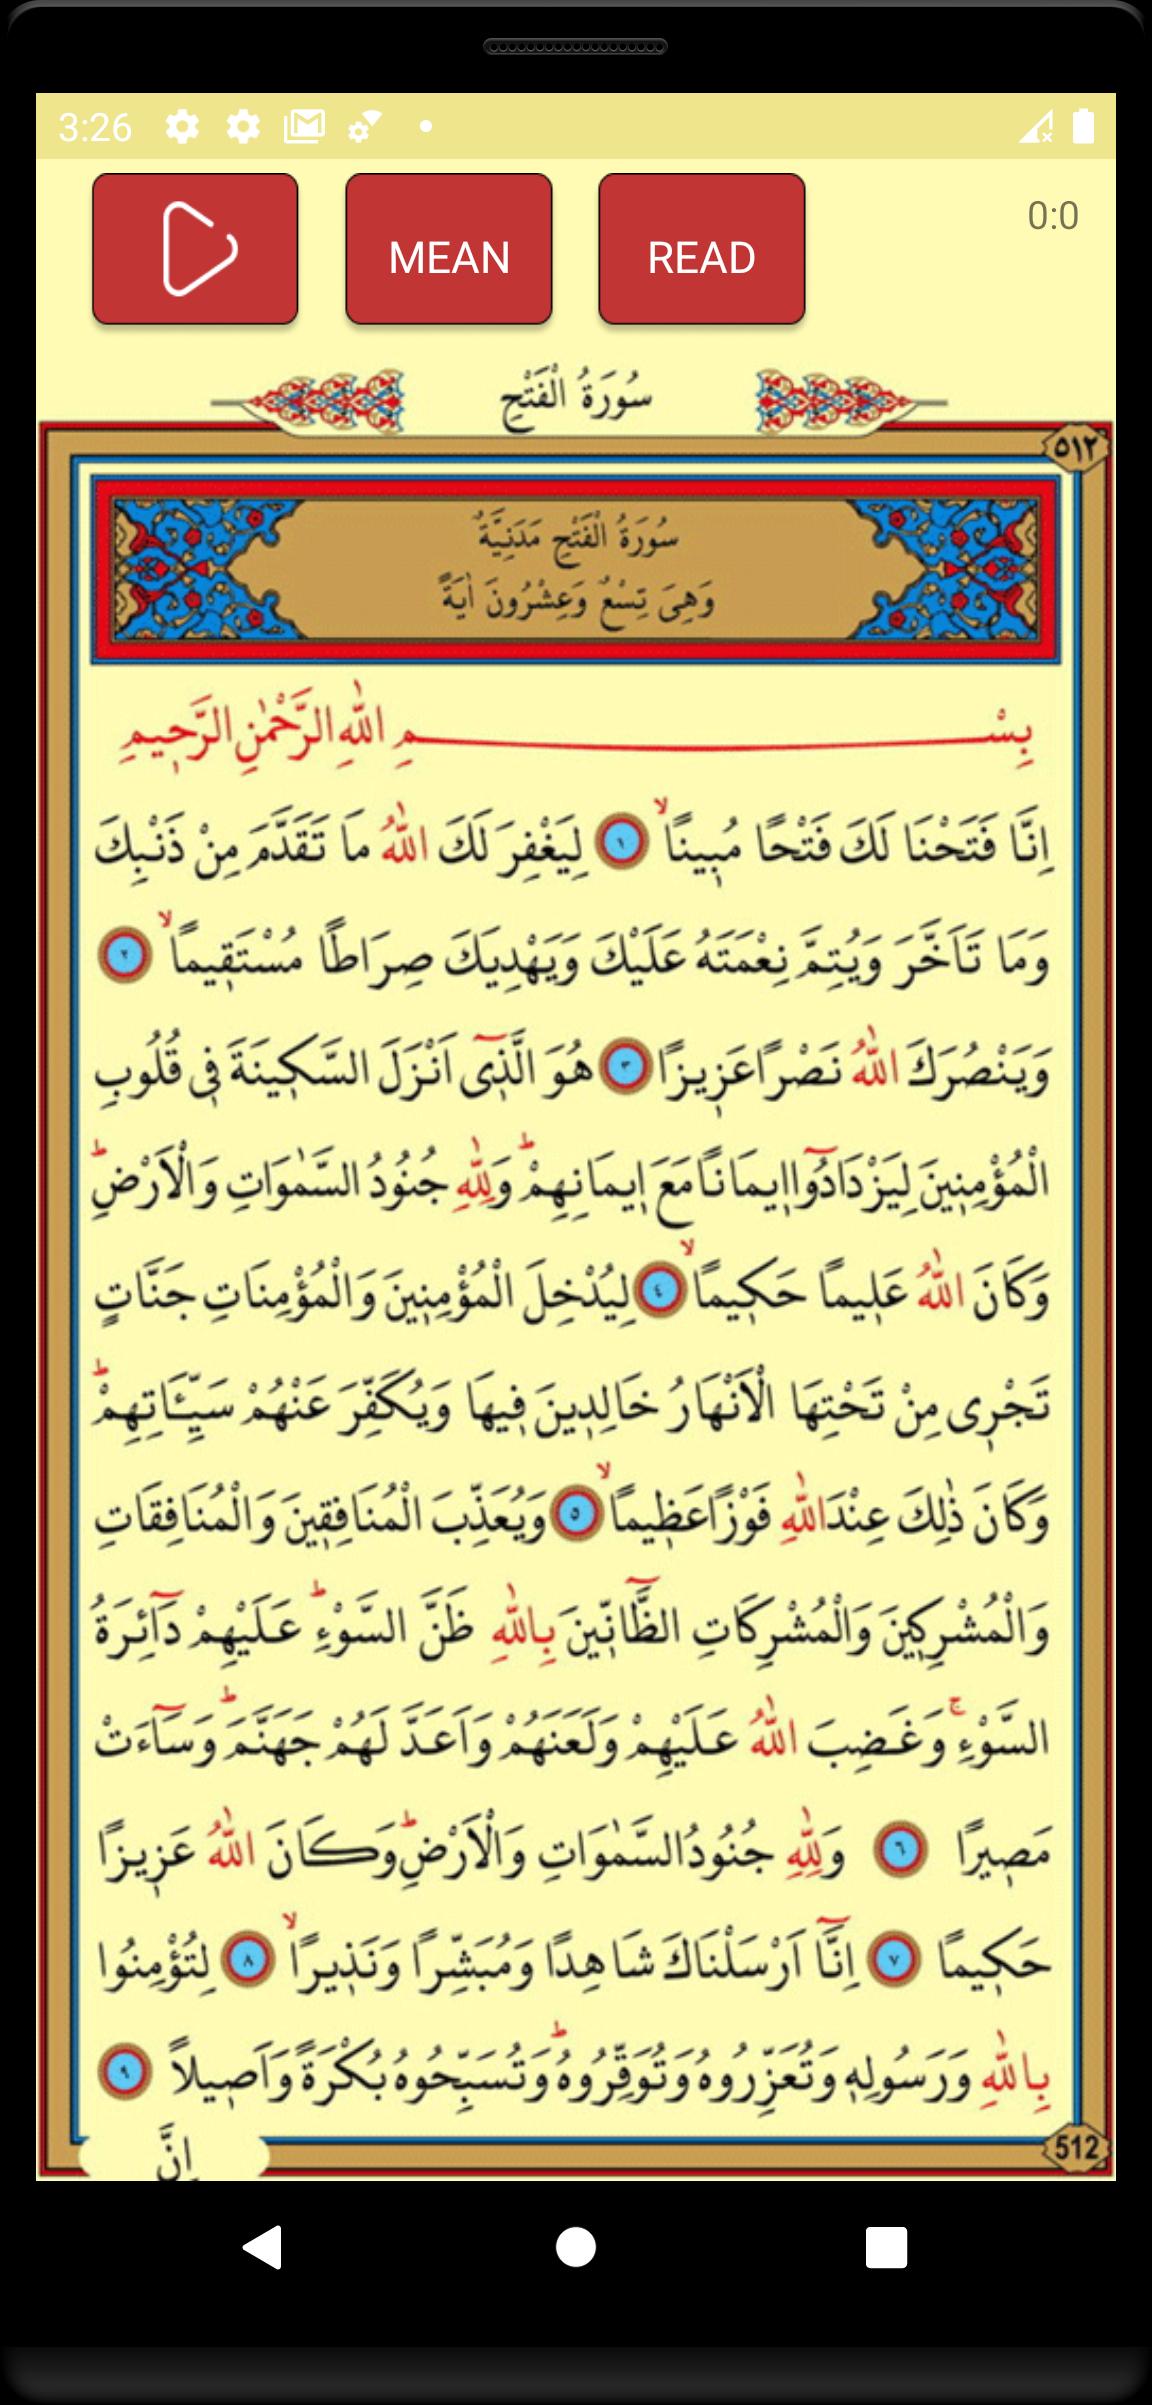 3:26
MEAN
READ
0:0
سُورَةُ الْفَتْحِ
٥١٢
سُورَةُ الْفَتْحِ مَدَنِيَّةٌ
وَهِىَ تِسْعٌ وَعِشْرُونَ اٰيَةً
بِسْمِ اللّٰهِ الرَّحْمٰنِ الرَّحٖيمِ
اِنَّا فَتَحْنَا لَكَ فَتْحًا مُبٖينًاۙ ١ لِيَغْفِرَ لَكَ اللّٰهُ مَا تَقَدَّمَ مِنْ ذَنْبِكَ
وَمَا تَاَخَّرَ وَيُتِمَّ نِعْمَتَهُ عَلَيْكَ وَيَهْدِيَكَ صِرَاطًا مُسْتَقٖيمًاۙ ٢
وَيَنْصُرَكَ اللّٰهُ نَصْرًا عَزٖيزًا ٣ هُوَ الَّذٖٓى اَنْزَلَ السَّكٖينَةَ فٖى قُلُوبِ
الْمُؤْمِنٖينَ لِيَزْدَادُٓوا اٖيمَانًا مَعَ اٖيمَانِهِمْؕ وَلِلّٰهِ جُنُودُ السَّمٰوَاتِ وَالْاَرْضِؕ
وَكَانَ اللّٰهُ عَلٖيمًا حَكٖيمًاۙ ٤ لِيُدْخِلَ الْمُؤْمِنٖينَ وَالْمُؤْمِنَاتِ جَنَّاتٍ
تَجْرٖى مِنْ تَحْتِهَا الْاَنْهَارُ خَالِدٖينَ فٖيهَا وَيُكَفِّرَ عَنْهُمْ سَيِّـَٔاتِهِمْؕ
وَكَانَ ذٰلِكَ عِنْدَ اللّٰهِ فَوْزًا عَظٖيمًاۙ ٥ وَيُعَذِّبَ الْمُنَافِقٖينَ وَالْمُنَافِقَاتِ
وَالْمُشْرِكٖينَ وَالْمُشْرِكَاتِ الظَّٓانّٖينَ بِاللّٰهِ ظَنَّ السَّوْءِؕ عَلَيْهِمْ دَٓائِرَةُ
السَّوْءِۚ وَغَضِبَ اللّٰهُ عَلَيْهِمْ وَلَعَنَهُمْ وَاَعَدَّ لَهُمْ جَهَنَّمَؕ وَسَٓاءَتْ
مَصٖيرًا ٦ وَلِلّٰهِ جُنُودُ السَّمٰوَاتِ وَالْاَرْضِؕ وَكَانَ اللّٰهُ عَزٖيزًا
حَكٖيمًا ٧ اِنَّٓا اَرْسَلْنَاكَ شَاهِدًا وَمُبَشِّرًا وَنَذٖيرًاۙ ٨ لِتُؤْمِنُوا
بِاللّٰهِ وَرَسُولِهٖ وَتُعَزِّرُوهُ وَتُوَقِّرُوهُؕ وَتُسَبِّحُوهُ بُكْرَةً وَاَصٖيلاً ٩
اِنَّ
512